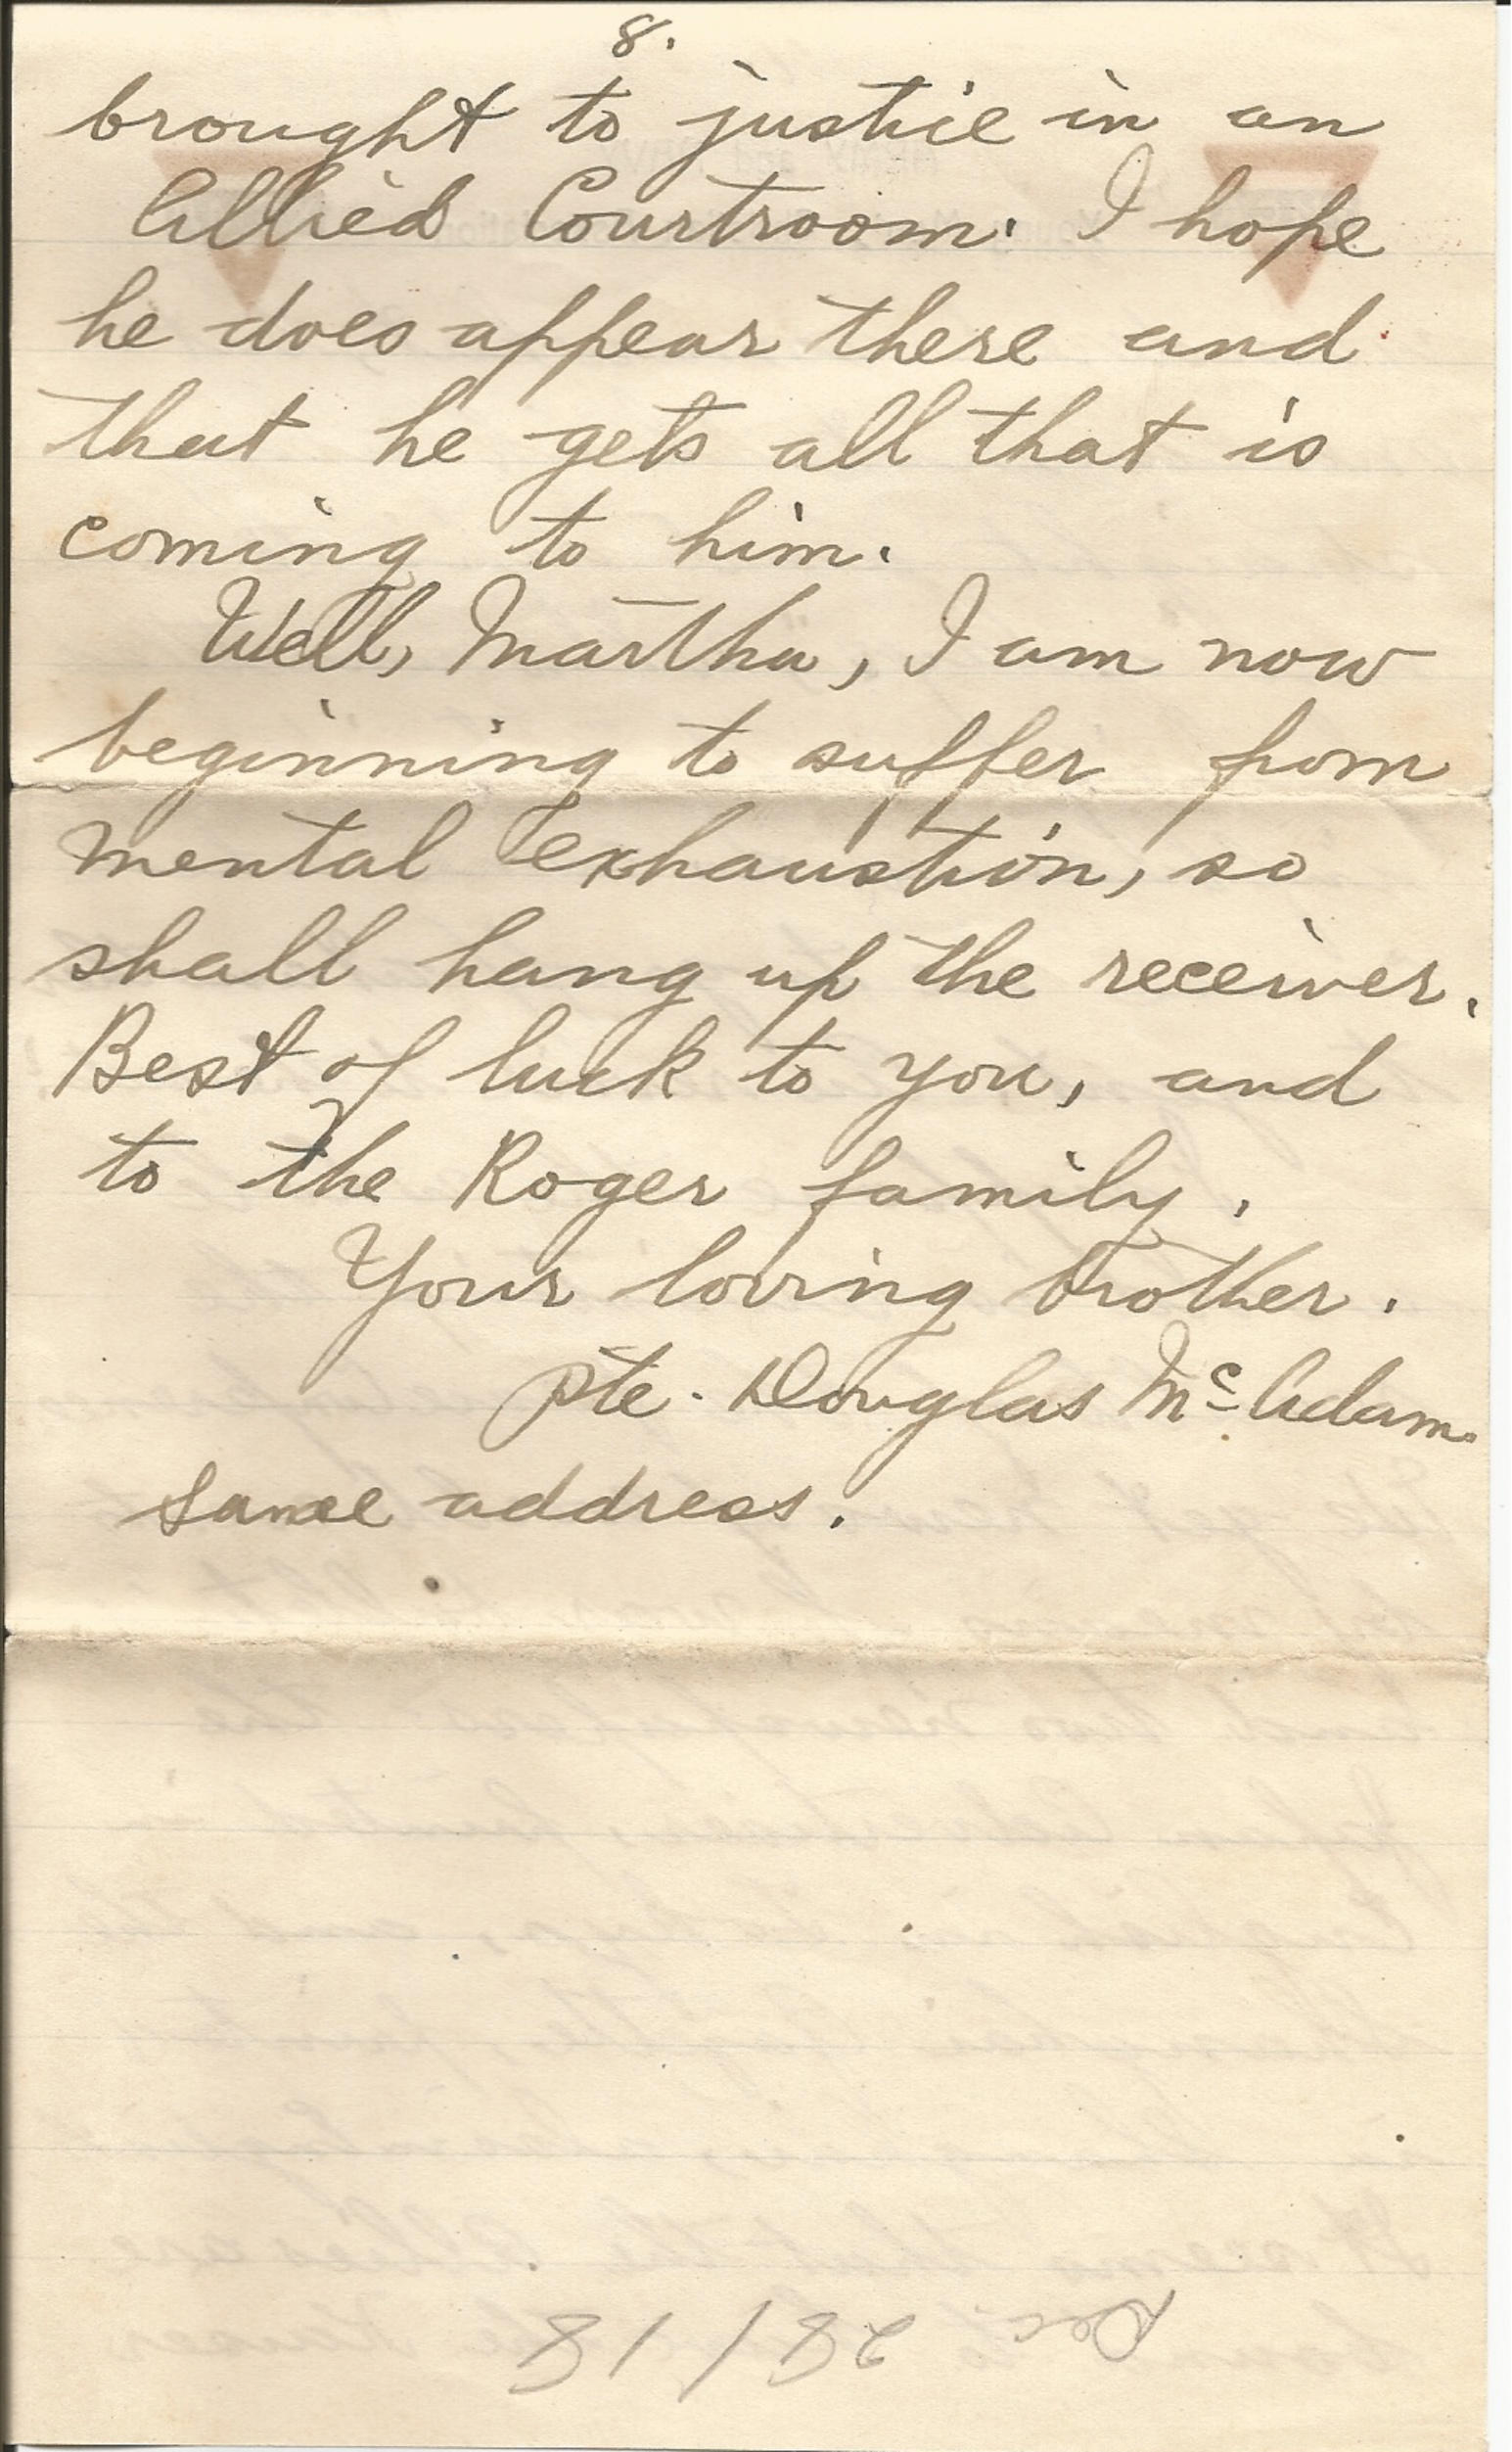 8.
brought to justice in an
Allied Courtroom. I hope
he does appear there and
that he gets all that is
coming to him.
Well, Martha, I am now
beginning to suffer from
mental exhaustion, so
shall hang up the receiver.
Best of luck to you, and
to the Roger family.
Your loving brother.
Pte. Douglas Mc Adam.
Same address.
Dec 28/18